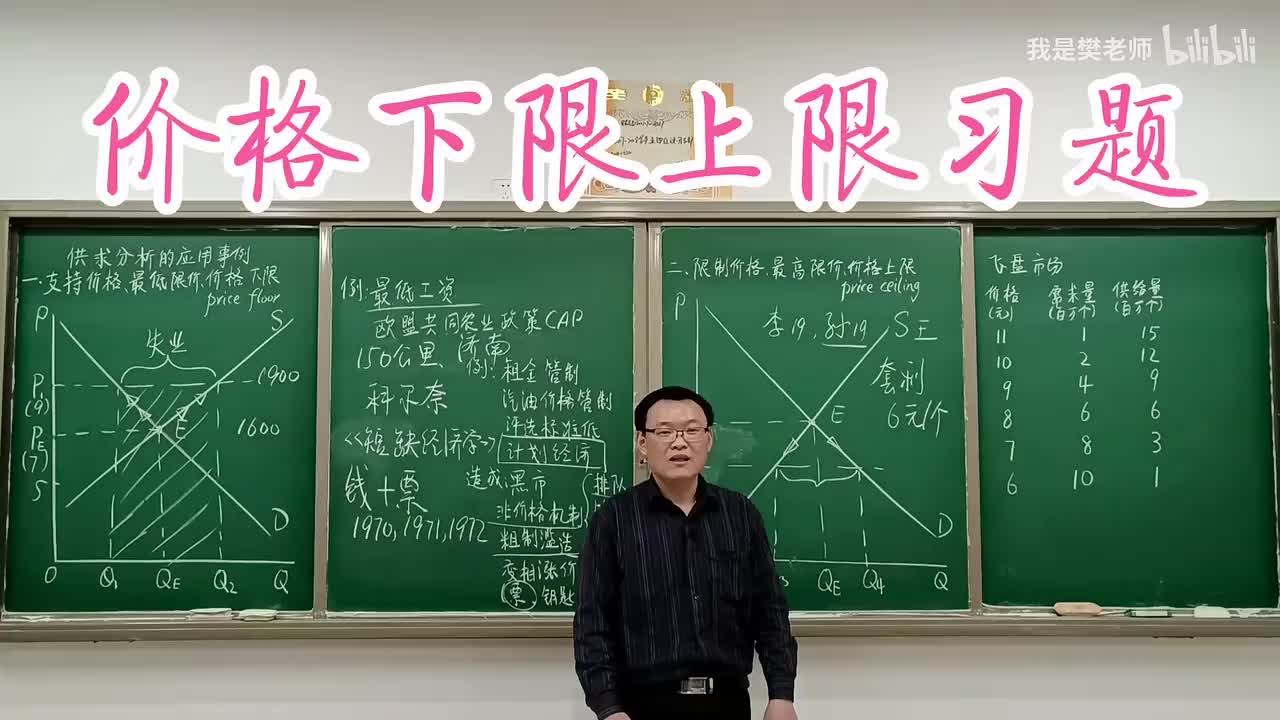 我是樊老师 bilibili
价格下限上限习题
供求分析的应用事例
一.支持价格、最低限价、价格下限
price flour
P
S
失业
P1
1900
(9)
PE
E
1600
(7)
5
D
O Q1 QE Q2 Q
例:最低工资
欧盟共同农业政策CAP
150公里、济南
例:租金管制
科尔奈
汽油价格管制
评先标准低
《短缺经济学》
计划经济
钱+票
造成黑市
排队
非价格机制
1970,1971,1972
粗制滥造
变相涨价
票 钥匙
二.限制价格、最高限价、价格上限
price ceiling
P
李19,孙19
S王
套利
E
6元/个
D
QE Q4 Q
飞盘市场
价格 需求量 供给量
(元) (百万个) (百万个)
11 1 15
10 2 12
9 4 9
8 6 6
7 8 3
6 10 1